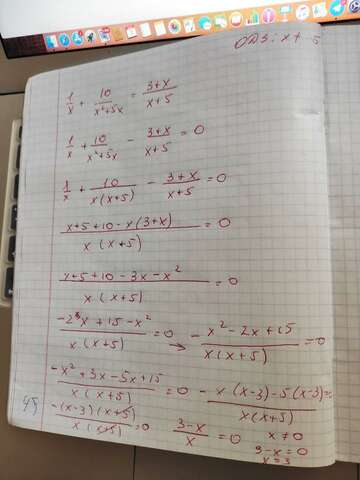 ОДЗ: x ≠ -5
1/x + 10/(x²+5x) = (3+x)/(x+5)
1/x + 10/(x²+5x) - (3+x)/(x+5) = 0
1/x + 10/(x(x+5)) - (3+x)/(x+5) = 0
(x+5+10-x(3+x))/(x(x+5)) = 0
(x+5+10-3x-x²)/(x(x+5)) = 0
(-2x+15-x²)/(x(x+5)) = 0 → (-x²-2x+15)/(x(x+5)) = 0
(-x²+3x-5x+15)/(x(x+5)) = 0 (-x(x-3)-5(x-3))/(x(x+5)) =
(-(x-3)(x+5))/(x(x+5)) = 0 (3-x)/x = 0 x ≠ 0
3-x=0
x=3